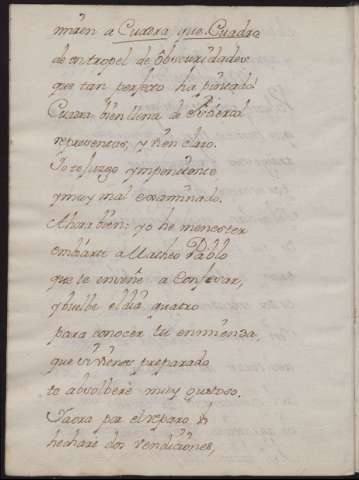 miren a Curra que Cuadro
de mtropel de Obscuridades
que tan perfecto ha pintado!
Curra bien llena de
representas, y bien claro.
Yo te juzgo ympenitente
y muy mal examinado.
Ahora bien: yo he menester
embiarte a Matheo Pablo
que te enseñe a Confesar,
y buelbe el dia quatro
para conocer tu enmienda,
que si vienes preparado
te absolberè muy gustoso.
Y aora por el reparo, te
hecharè dos vendiciones,